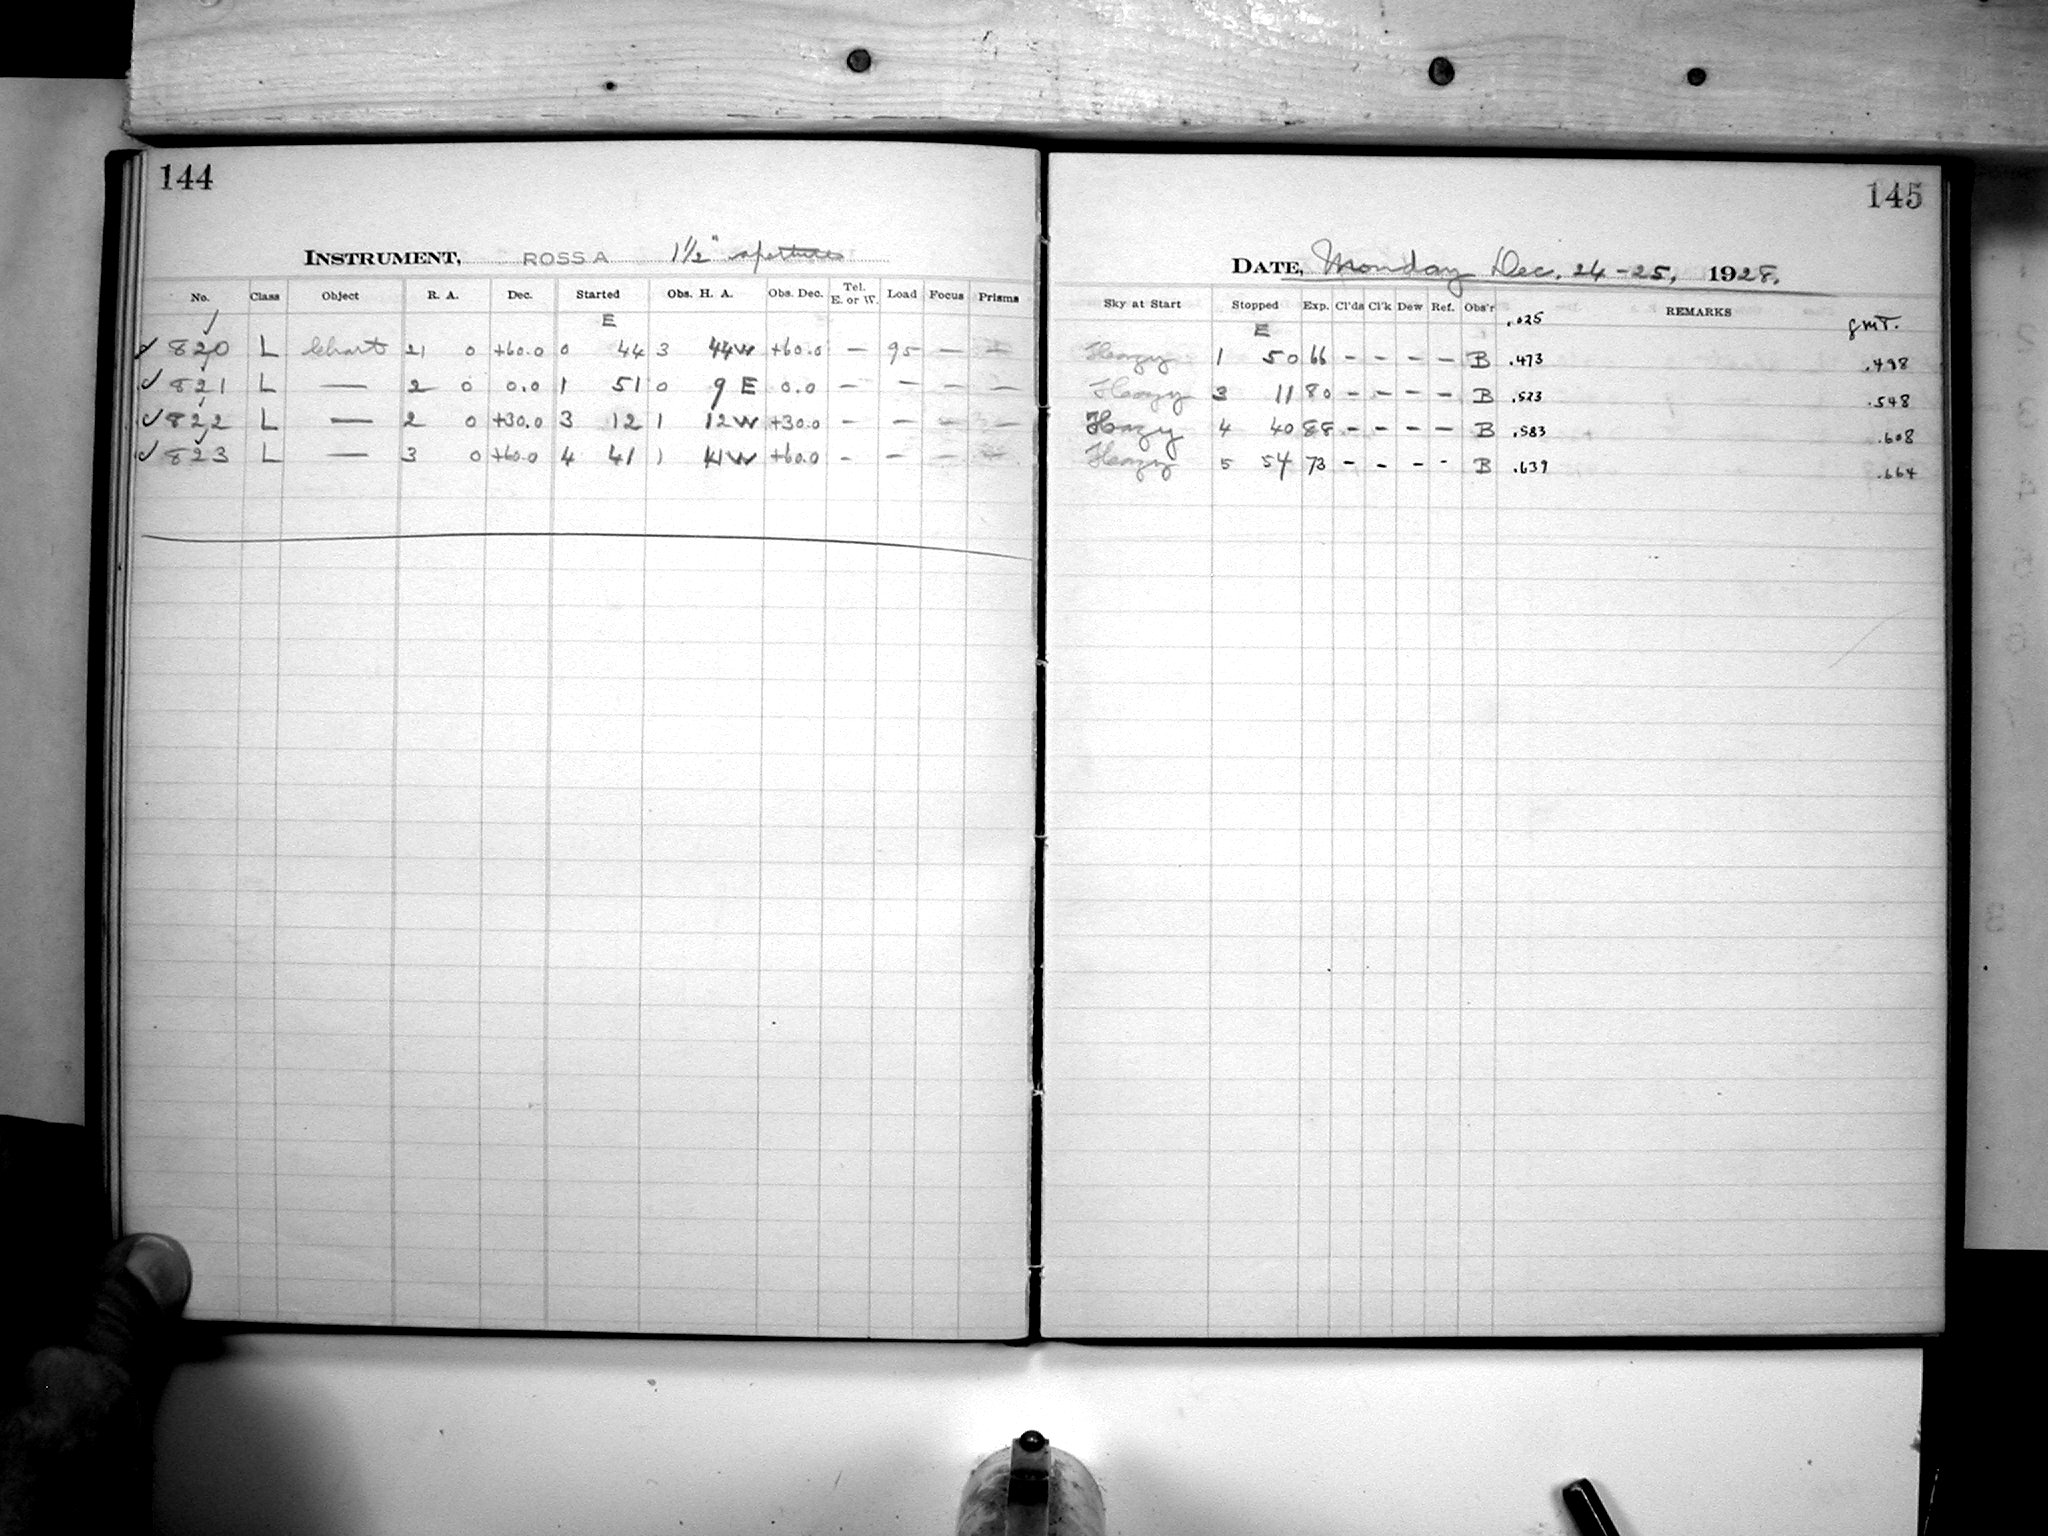 144
INSTRUMENT, ROSS A 1 1/2" apertures
No. Class Object R. A. Dec. Started Obs. H. A. Obs. Dec. Tel. E. or W. Load Focus Prisms
E
820 L Chart 21 0 +60.0 0 44 3 44 W +60.0 — 95 — —
821 L — 2 0 0.0 1 51 0 9 E 0.0 — — — —
822 L — 2 0 +30.0 3 12 1 12 W +30.0 — — — —
823 L — 3 0 +60.0 4 41 1 41 W +60.0 - — — —
145
DATE, Monday Dec. 24-25, 1928.
Sky at Start Stopped Exp. Cl'ds Cl'k Dew Ref. Obs'r REMARKS
E .025 GMT.
Hazy 1 50 66 - - - - B .473 .498
Hazy 3 11 80 - - - - B .523 .548
Hazy 4 40 88 - - - - B .583 .608
Hazy 5 54 73 - - - - B .639 .664